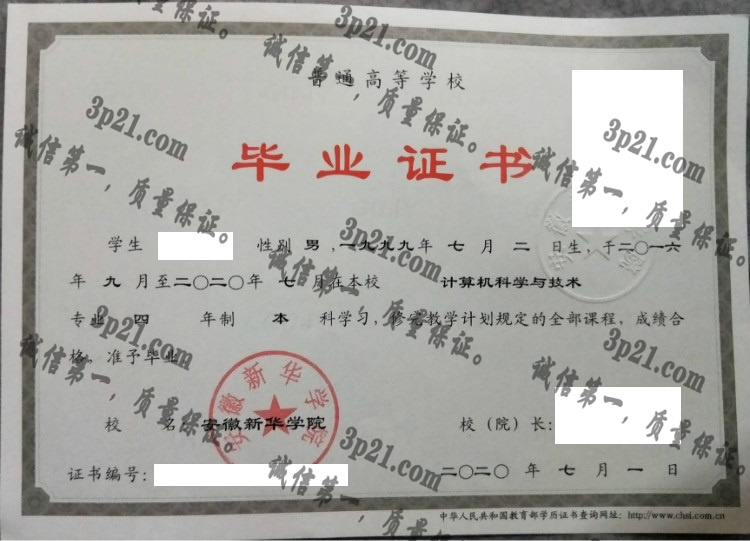 普通高等学校
毕业证书
学生 性别 男，一九九九年 七 月 二 日生，于二〇一六
年 九 月至二〇二〇年 七 月在本校 计算机科学与技术
专业 四 年制 本 科学习，修完教学计划规定的全部课程，成绩合
格，准予毕业
校 名：安徽新华学院 校（院）长：
安徽新华学院
证书编号： 二〇二〇 年 七 月 一 日
中华人民共和国教育部学历证书查询网址：http://www.chsi.com.cn
3p21.com
诚信第一，质量保证。
3p21.com
诚信第一，质量保证。
3p21.com
诚信第一，质量保证。
3p21.com
诚信第一，质量保证。
3p21.com
诚信第一，质量保证。
3p21.com
诚信第一，质量保证。
3p21.com
诚信第一，质量保证。